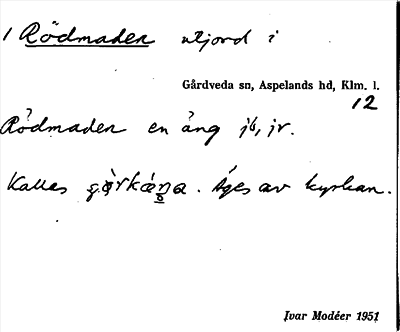 1 Rödmaden utjord i
Gårdveda sn, Aspelands hd, Klm. l.
12
Rödmaden en äng
Kallas . Äges av kyrkan.
Ivar Modéer 1951